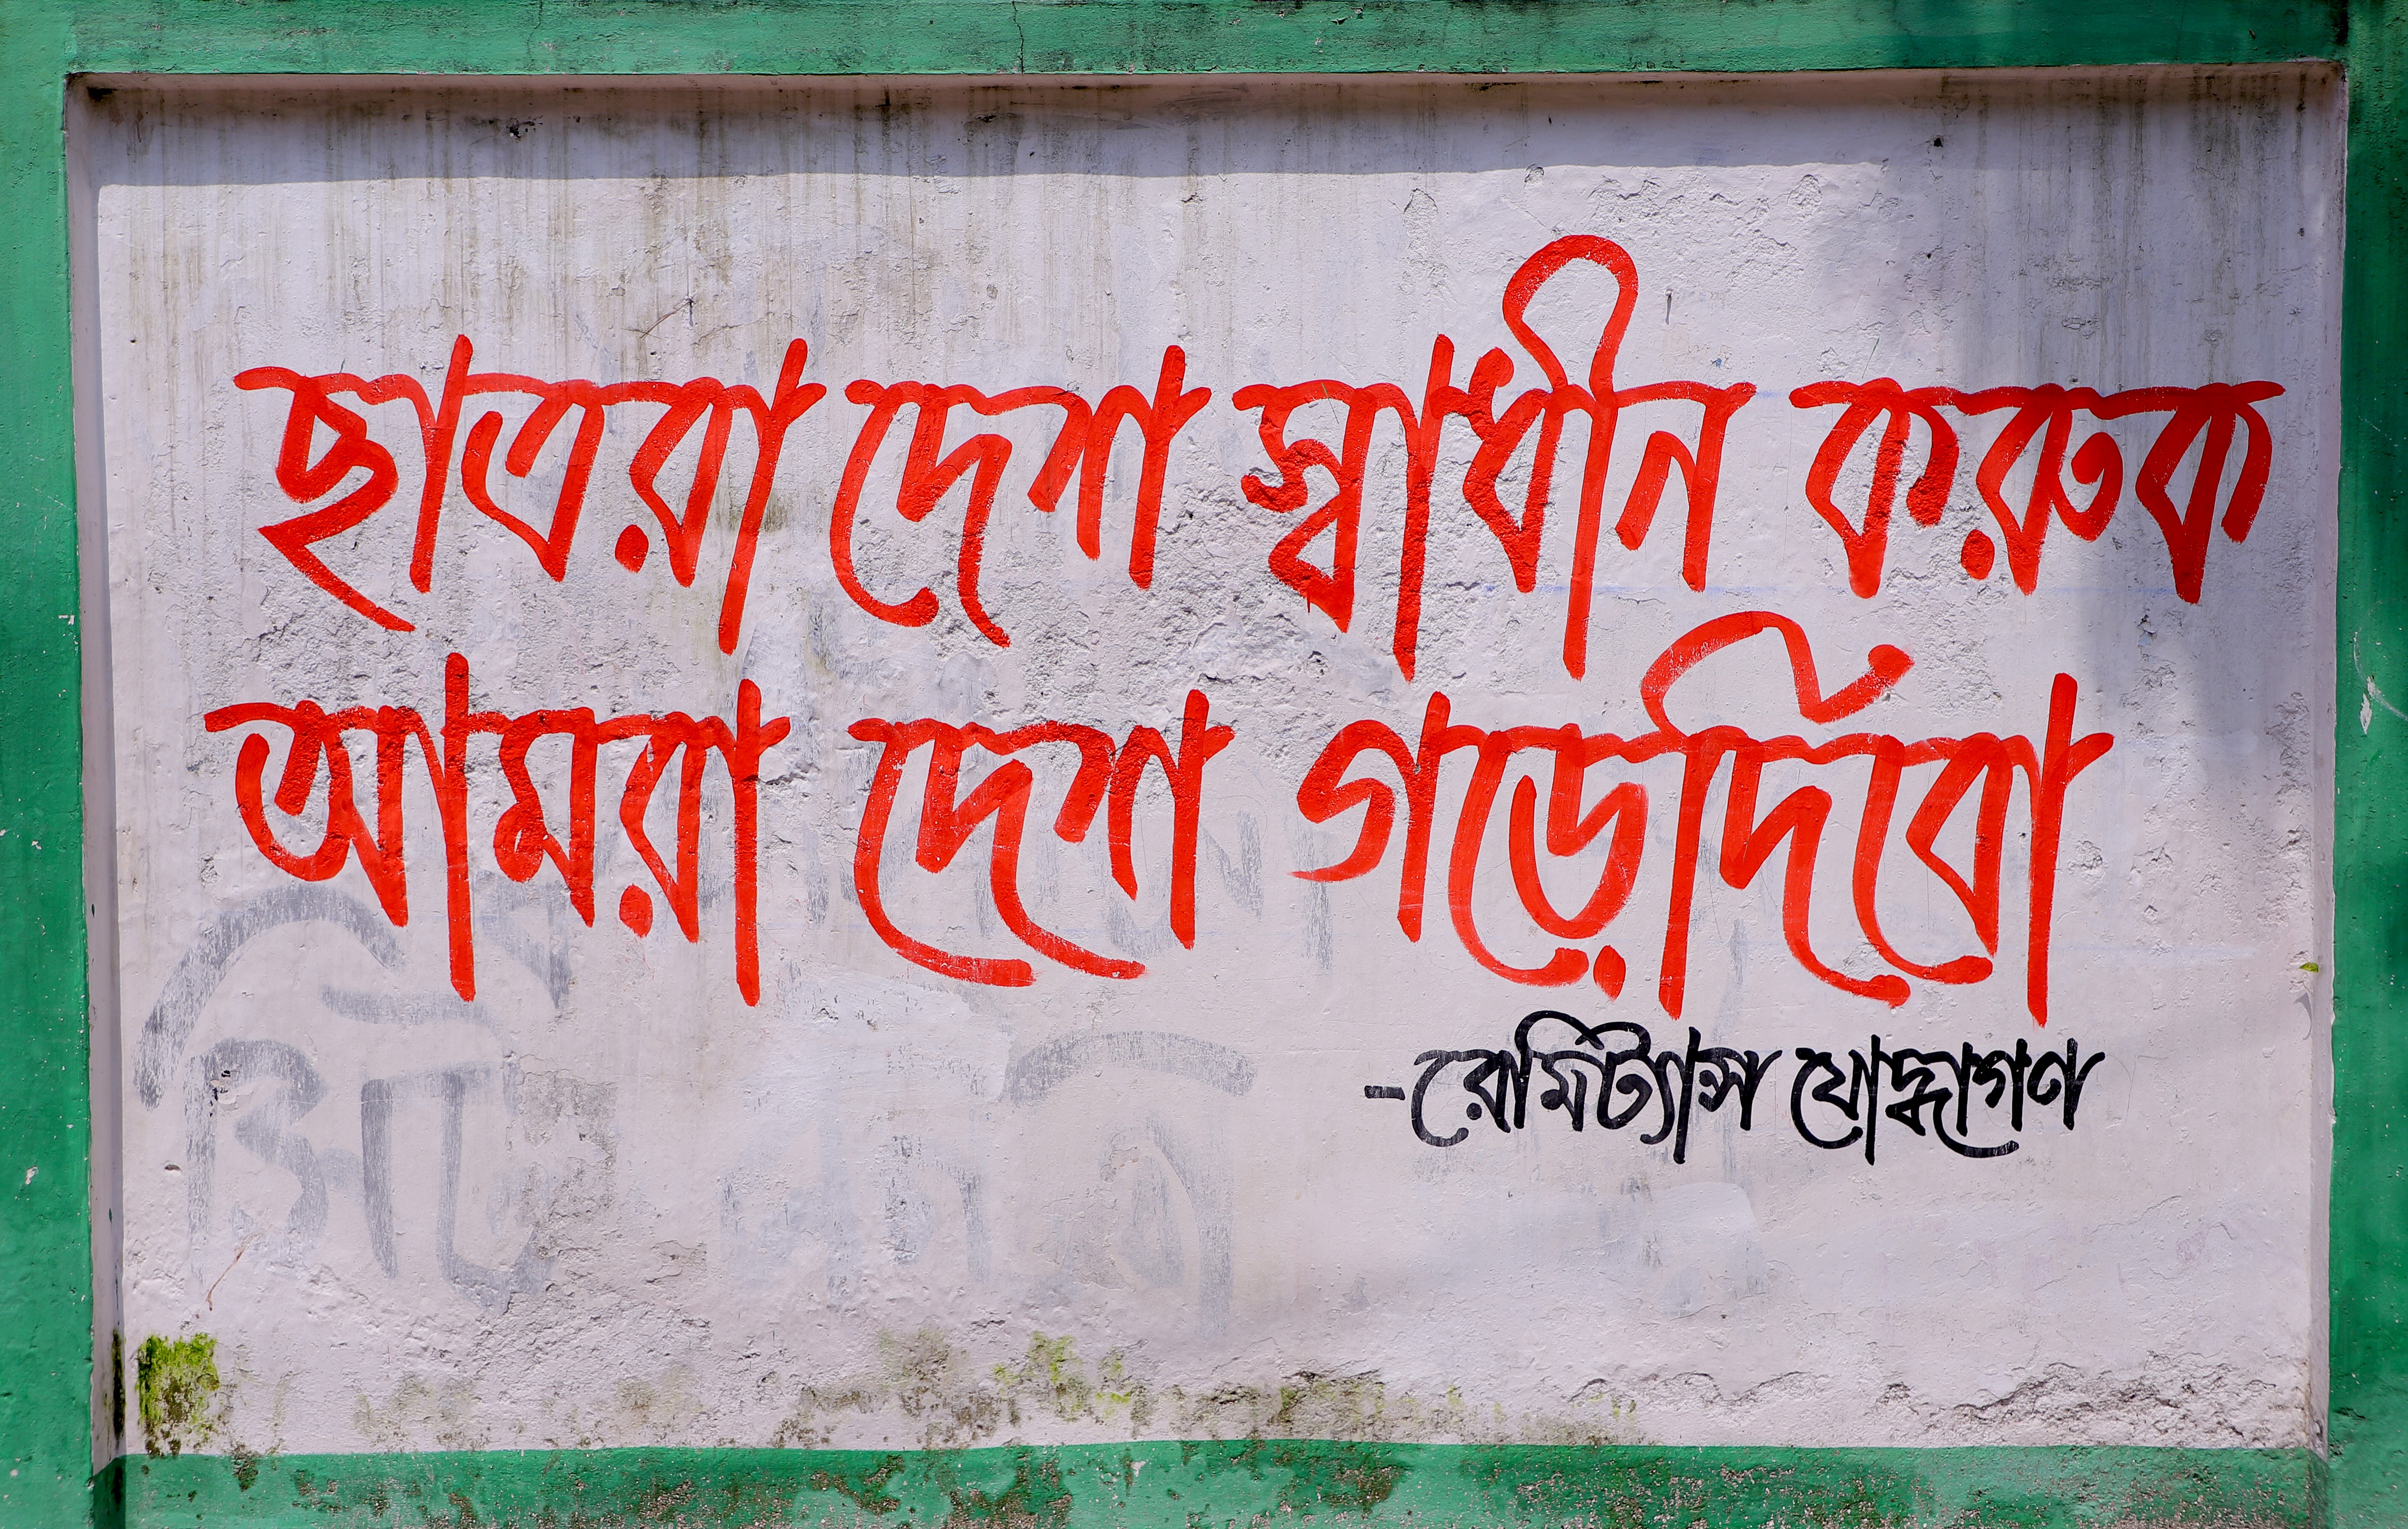 ছাত্ররা দেশ স্বাধীন করুক
আমরা দেশ গড়েদিবো
-রেমিট্যান্স যোদ্ধাগণ